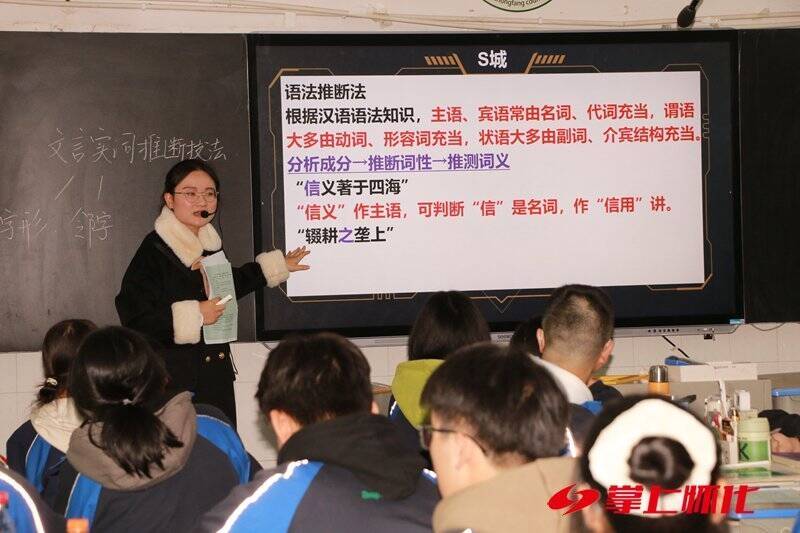 S城
语法推断法
根据汉语语法知识，主语、宾语常由名词、代词充当，谓语
大多由动词、形容词充当，状语大多由副词、介宾结构充当。
分析成分→推断词性→推测词义
“信义著于四海”
“信义”作主语，可判断“信”是名词，作“信用”讲。
“辍耕之垄上”
文言实词推断技法
字形
掌上怀化